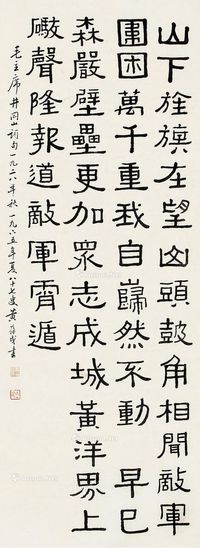 山下旌旗在望山頭鼓角相聞敵軍
圍困萬千重我自巋然不動 早已
森嚴壁壘更加眾志成城黃洋界上
礮聲隆報道敵軍宵遁
毛主席井岡山詞句一九二八年秋 一九六五年夏八十七叟黃葆戉書